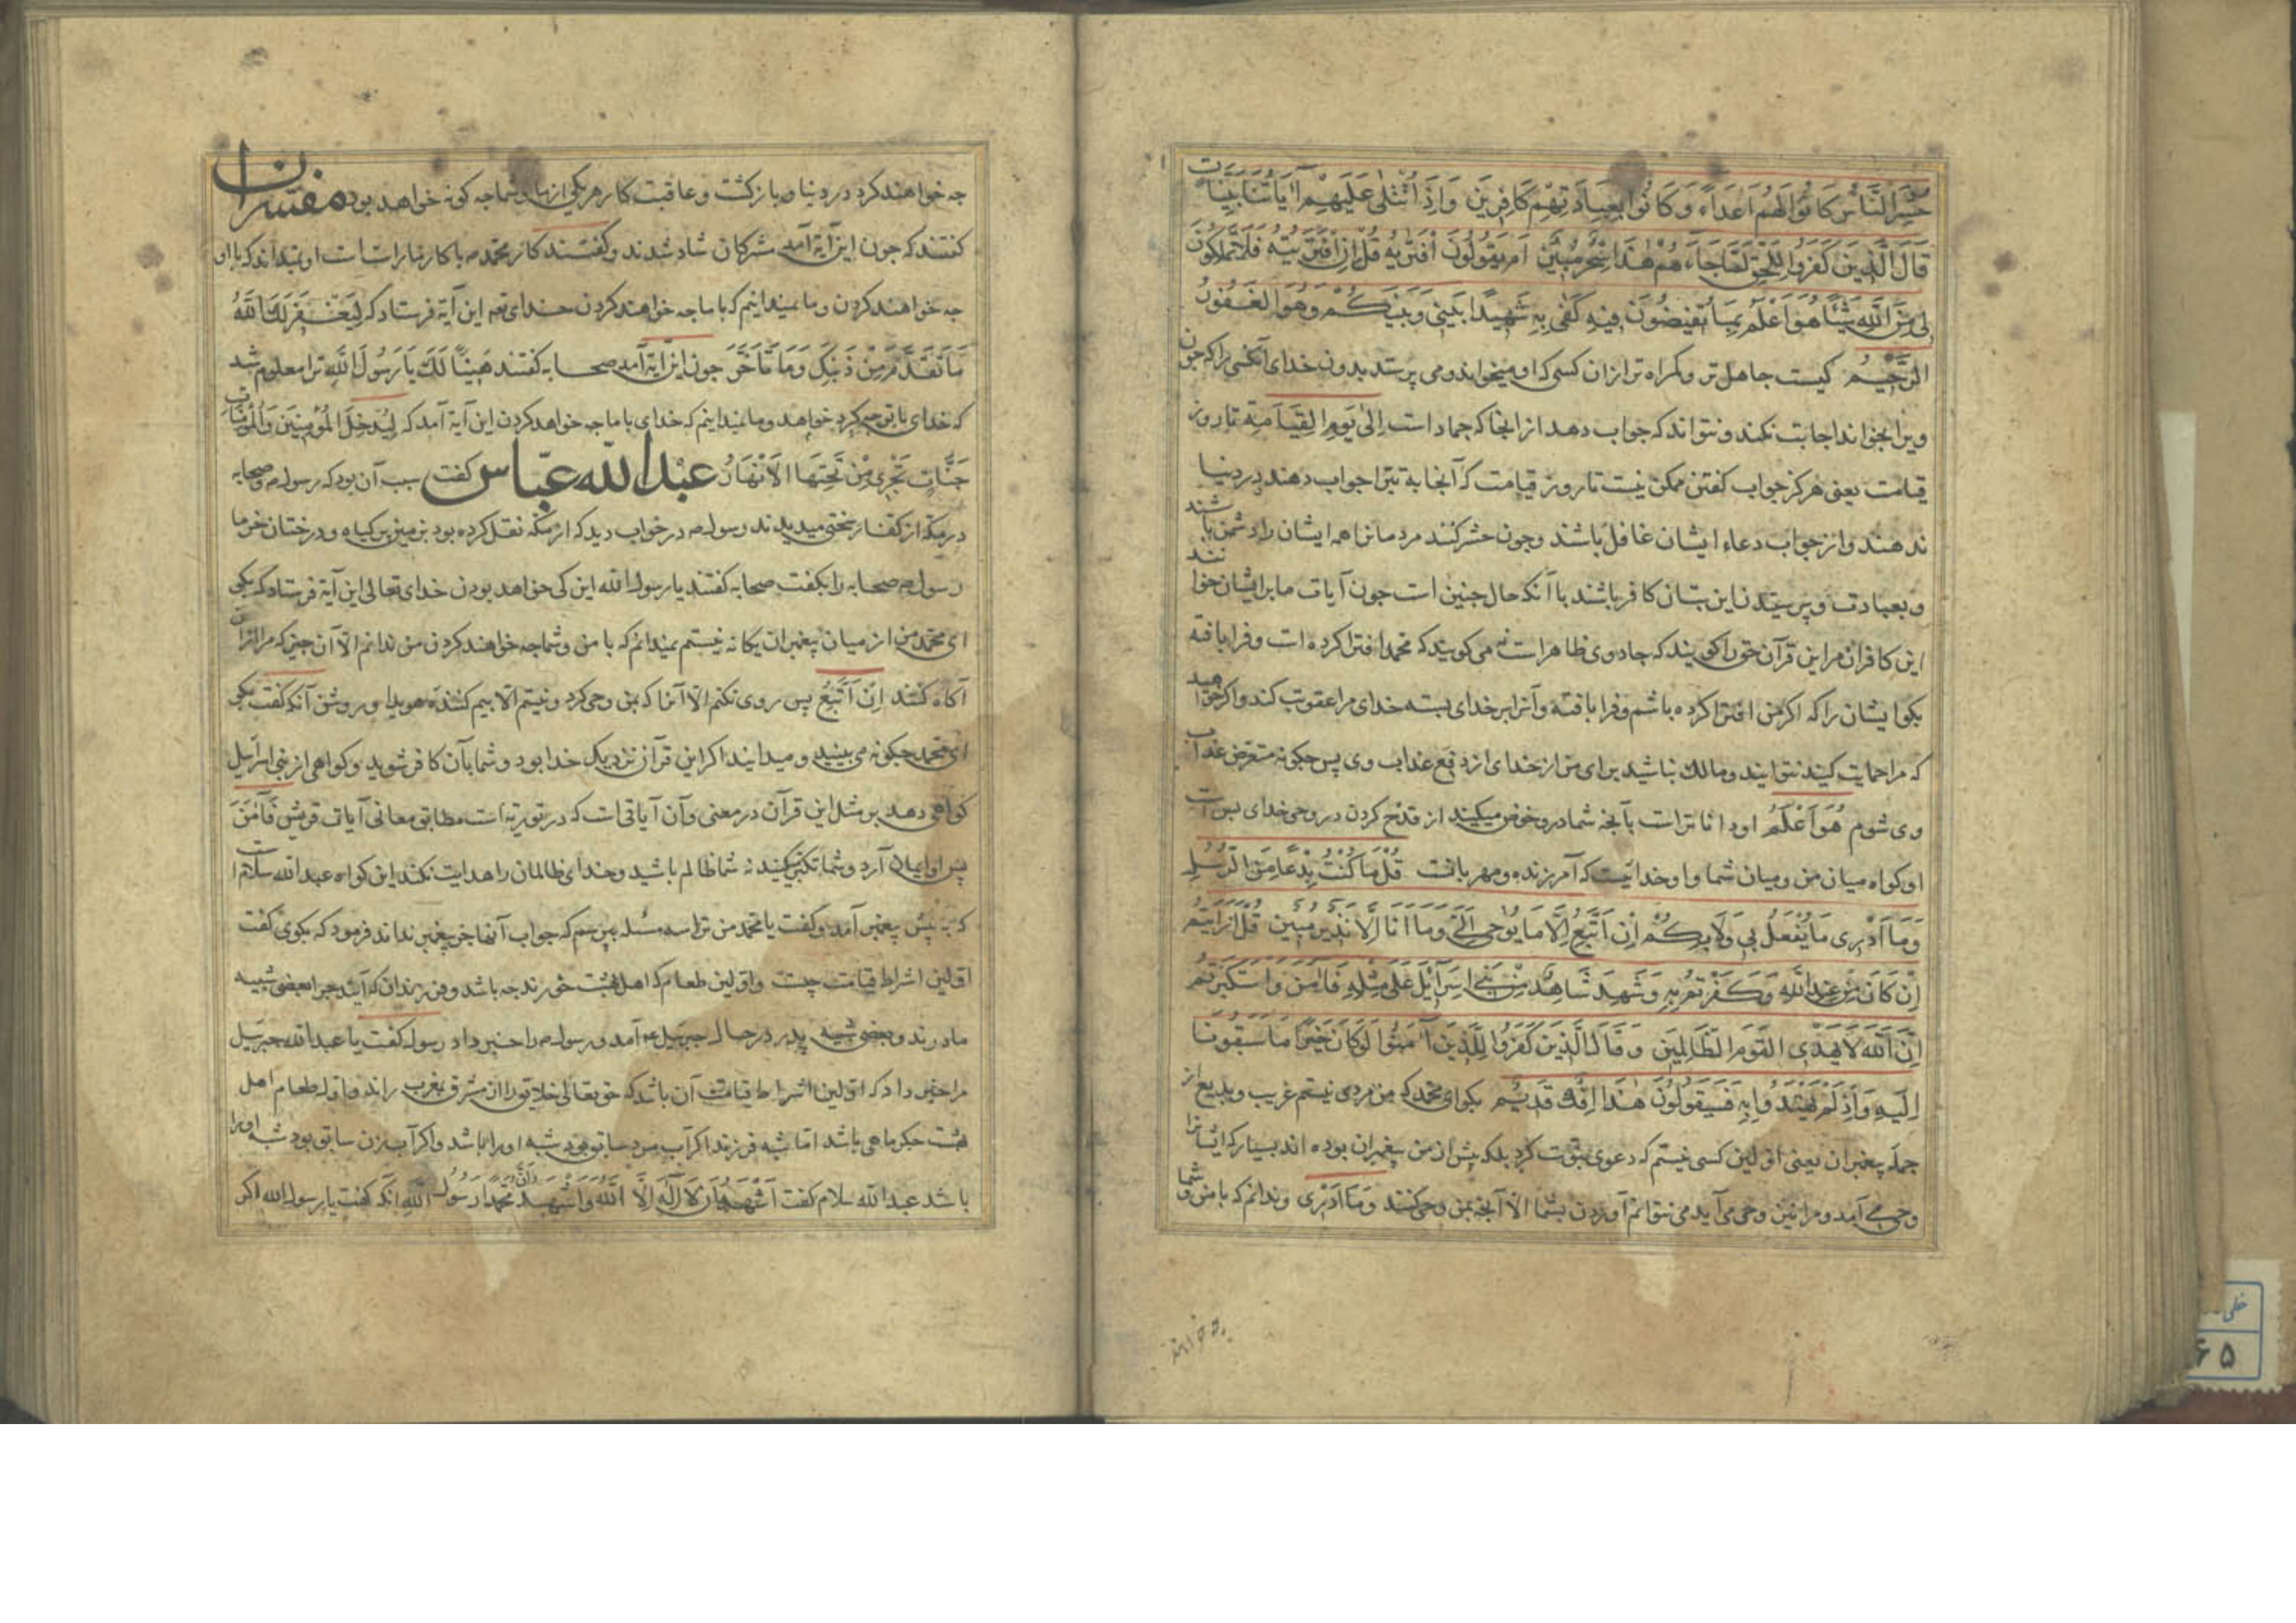 حُشِرَ النَّاسُ كَانُوا لَهُمْ أَعْدَاءً وَكَانُوا بِعِبَادَتِهِمْ كَافِرِينَ وَإِذَا تُتْلَىٰ عَلَيْهِمْ آيَاتُنَا بَيِّنَاتٍ
قَالَ الَّذِينَ كَفَرُوا لِلْحَقِّ لَمَّا جَاءَهُمْ هَٰذَا سِحْرٌ مُبِينٌ أَمْ يَقُولُونَ افْتَرَاهُ قُلْ إِنِ افْتَرَيْتُهُ فَلَا تَمْلِكُونَ
لِي مِنَ اللَّهِ شَيْئًا هُوَ أَعْلَمُ بِمَا تُفِيضُونَ فِيهِ كَفَىٰ بِهِ شَهِيدًا بَيْنِي وَبَيْنَكُمْ وَهُوَ الْغَفُورُ
الرَّحِيمُ کیست جاهل تر و کمراه تر ازان کسی که او میخواند و می پرستد بدون خدای آنکسی را که چون
ویرا بخوانند اجابت نکند و نتواند که جواب دهد از انجا که جماد است إِلَىٰ يَوْمِ الْقِيَامَةِ تا روز
قیامت یعنی هرکز جواب کفتن ممکن نیست تا روز قیامت که آنجا به تبرا جواب دهند و در دنیا
ندهند و از جواب دعاء ایشان غافل باشند و جون حشر کنند مردمانرا همه ایشان را دشمن باشند
و بعبادت و پرستیدن این بتان کافر باشند با آنکه حال جنین است جون آیات ما بر ایشان خوانند
این کافران مر این قرآن حق را کویند که جادوی ظاهر است می کویند که محمد افترا کرده است و فرا بافته
بکو ایشان را که اکر من افترا کرده باشم و فرا بافته و آنرا بر خدای بسته خدای مرا عقوبت کند و اکر خواهید
که مرا حمایت کنید نتوانید و مالک نباشید برای من از خدای از دفع عذاب وی پس جکونه متعرض عذاب
وی شوم هُوَ أَعْلَمُ او دانا تر است بآنجه شما درو خوض میکنید از قدح کردن در وحی خدای بس است
او کواه میان من و میان شما و او خدائیست که آمرزنده و مهربانست قُلْ مَا كُنْتُ بِدْعًا مِنَ الرُّسُلِ
وَمَا أَدْرِي مَا يُفْعَلُ بِي وَلَا بِكُمْ إِنْ أَتَّبِعُ إِلَّا مَا يُوحَىٰ إِلَيَّ وَمَا أَنَا إِلَّا نَذِيرٌ مُبِينٌ قُلْ أَرَأَيْتُمْ
إِنْ كَانَ مِنْ عِنْدِ اللَّهِ وَكَفَرْتُمْ بِهِ وَشَهِدَ شَاهِدٌ مِنْ بَنِي إِسْرَائِيلَ عَلَىٰ مِثْلِهِ فَآمَنَ وَاسْتَكْبَرْتُمْ
إِنَّ اللَّهَ لَا يَهْدِي الْقَوْمَ الظَّالِمِينَ وَقَالَ الَّذِينَ كَفَرُوا لِلَّذِينَ آمَنُوا لَوْ كَانَ خَيْرًا مَا سَبَقُونَا
إِلَيْهِ وَإِذْ لَمْ يَهْتَدُوا بِهِ فَسَيَقُولُونَ هَٰذَا إِفْكٌ قَدِيمٌ بکو ای محمد که من مردی نیستم غریب و بدیع از
جمله پیغمبران یعنی اولین کسی نیستم که دعوی نبوت کرد بلکه پیش از من پیغمبران بوده اند بسیار که ایشانرا
وحی می آمد و مرا نیز وحی می آید می نتوانم آوردن بشما الا آنجه بمن وحی کنند وَمَا أَدْرِي و ندانم که با من و شما
جه خواهند کرد در دنیا و بازکشت و عاقبت کار هر یکی از ما و شما جه کونه خواهد بود مفسران
کفتند که جون این آیة آمد مشرکان شاد شدند و کفتند کار محمد با کار ما راست است او نمیداند که با او
جه خواهند کردن و ما نمیدانیم که با ما جه خواهند کردن خدای این آیة فرستاد که لِيَغْفِرَ لَكَ اللَّهُ
مَا تَقَدَّمَ مِنْ ذَنْبِكَ وَمَا تَأَخَّرَ جون این آیة آمد صحابه کفتند هَنِيئًا لَكَ يَا رَسُولَ اللَّهِ ترا معلوم شد
که خدای با تو چه کرد خواهد و ما نمیدانیم که خدای با ما جه خواهد کردن این آیة آمد که لِيُدْخِلَ الْمُؤْمِنِينَ وَالْمُؤْمِنَاتِ
جَنَّاتٍ تَجْرِي مِنْ تَحْتِهَا الْأَنْهَارُ عبد الله عباس کفت سبب آن بود که رسول و صحابه
در مکه از کفار سختی میدیدند رسول در خواب دید که از مکه نقل کرده بود بزمین بر کیاه و درختان خرما
رسول صحابه را بکفت صحابه کفتند یا رسول الله این کی خواهد بودن خدای تعالی این آیة فرستاد که بکو
ای محمد من از میان پیغمبران یکانه نیستم نمیدانم که با من و شما جه خواهند کردن من ندانم الا آن جیز که مرا از آن
آکاه کنند إِنْ أَتَّبِعُ پس روی نکنم الا آنرا که بمن وحی کرد و نیستم الا بیم کننده هویدا و روشن آنکه کفت بکو
ای محمد جکونه می بینید و میدانید اکر این قرآن نزدیک خدا بود و شما بآن کافر شوید و کواهی از بنی اسرائیل
کواهی دهد بر مثل این قرآن در معنی و آن آیاتی است که در توریة است مطابق معانی آیات قریش فَآمَنَ
پس او ایمان آرد و شما تکبر کنید نه شما ظالم باشید و خدای ظالمان را هدایت نکند این کواه عبدالله سلام است
که به پیش پیغمبر آمد و کفت یا محمد من ترا سه مسئله بپرسم که جواب آنها جز پیغمبر نداند فرمود که بکوی کفت
اولین اشراط قیامت چیست و اولین طعام که اهل بهشت خورند جه باشد و فرزندان که آیند جرا بعضی شبیه
مادرند و بعضی شبیه پدر در حال جبرئیل آمد و رسول را خبر داد رسول کفت یا عبدالله جبرئیل
مرا خبر داد که اولین اشراط قیامت آن باشد که حق تعالی خلایق را از مشرق بمغرب راند و اول طعام اهل
بهشت جکر ماهی باشد اما شبه فرزند اکر آب مرد سابق بود شبه او را باشد و اکر آب زن سابق بود شبه او را
باشد عبدالله سلام کفت أَشْهَدُ أَنْ لَا إِلَٰهَ إِلَّا اللَّهُ وَأَشْهَدُ أَنَّ مُحَمَّدًا رَسُولُ اللَّهِ آنکه کفت یا رسول الله اکر
جه خواهند
خطی
۶۵